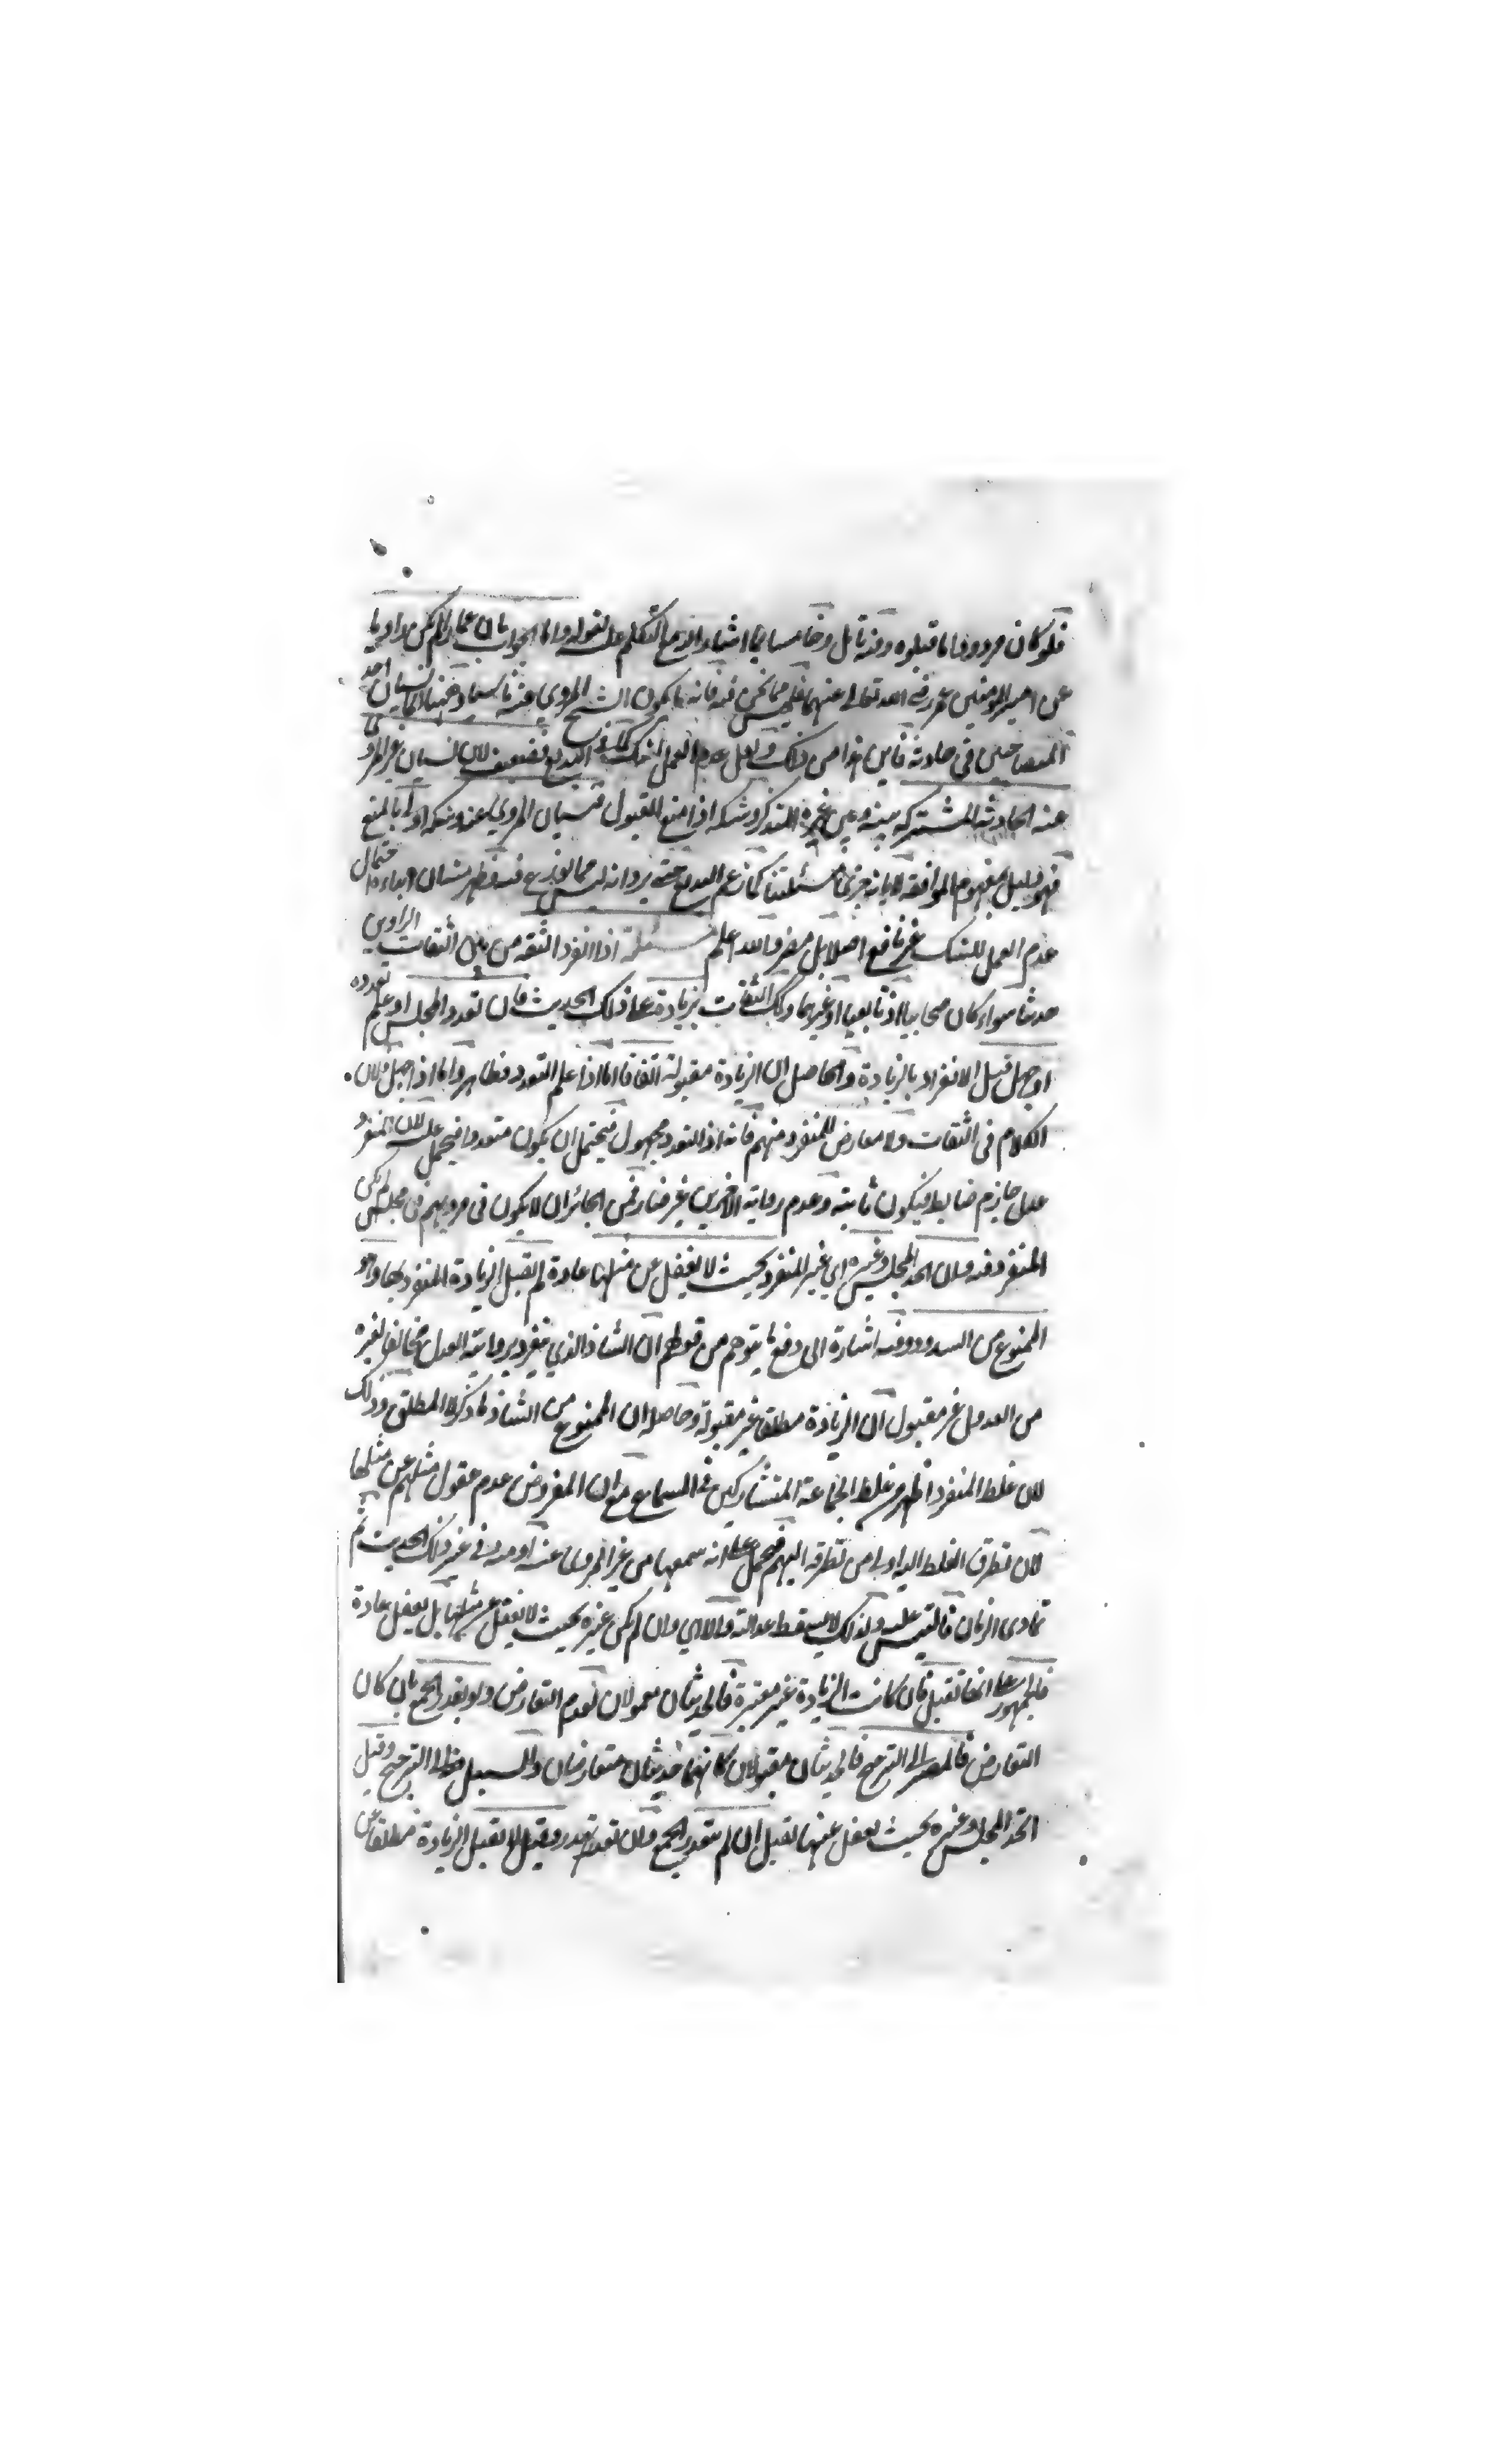 فلو كان مردودا ما قبلوه وفيه تامل وخامسا بما اشار البديع المتكلم عليه بقوله واما الجواب بان عمارا لم يكن راويا
عن امير المومنين عمر رضي الله تعالى عنهما فليس مما نحن فيه فانه ما يكون الشيخ المروي عنه ناسيا وههنا نسيان احد
المتصاحبين في حادثة فاين هذا من ذلك ولعل عدم العمل لذلك كما في البديع فضعيف لان نسيان غير المروي
عنه الحادثة المشتركة بينه وبين غيره للتذكر وشكه اذا منع القبول فنسيان المروي عنه وشكه اولى بالمنع
فهو دليل بمفهوم الموافقة لا بانه جزئي مسئلتنا كما زعم البديع حتى يرد انه ليس مما نوزع فيه فظهر ان ابداء احتمال
عدم العمل للشك غير نافع اصلا بل مضر والله اعلم مسئلة اذا انفرد الثقة من بين الثقات الراوين
حديثا سواء كان صحابيا او تابعيا او غيرهما وتلك الثقات بزيادة على ذلك الحديث فان تعدد المجلس او علم تعدده
او جهل قبل الانفراد بالزيادة والحاصل ان الزيادة مقبولة اتفاقا اما اذا علم التعدد فظاهر واما اذا جهل فلان
الكلام في الثقات ولا معارض للمنفرد منهم فانه اذا التعدد مجهول فيحتمل ان يكون متعددا فيحمل عليه لان المنفرد
عدل جازم ضابط فيكون ثابتة وعدم رواية الاخرين غير ضار فمن الجائز ان لا يكون في مرويهم في مجلس لم يكن
المنفرد فيه وان اتحد المجلس وغيره اي غير المنفرد بحيث لا يغفل عن مثلها عادة لم تقبل الزيادة المنفرد بها وهو
الممنوع من الشذوذ وفيه اشارة الى دفع ما يتوهم من قولهم ان الشاذ الذي ينفرد برواية العدل مخالفا لغيره
من العدول غير مقبول ان الزيادة مطلقا غير مقبولة وحاصله ان الممنوع من الشاذ ما ذكر لا المطلق وذلك
لان غلط المنفرد اظهر من غلط الجماعة المتشاركين في السماع مع ان المفروض عدم غفول مثلهم عن مثلها
لان تطرق الغلط اليه اولى من تطرقه اليهم فيحمل على انه سمعها من غير المروي عنه او منه في غير ذلك الحديث ثم
تمادى الزمان فالتبس عليه ولذلك لا يسقط عدالته والا اي وان لم يكن غيره بحيث لا يغفل عن مثلها بل يغفل عادة
فالجمهور على انها تقبل فان كانت الزيادة غير مغيرة فالحديثان معمولان لعدم التعارض ولو تعذر الجمع بان كان
التعارض فالمصير الى الترجيح فالحديثان مقبولان كانهما حديثان متعارضان والسبيل فيها الى الترجيح وقيل
اتحد المجلس وغيره بحيث يغفل عنها تقبل ان لم يتعذر الجمع وان تعذر وقيل لا تقبل الزيادة مطلقا عن